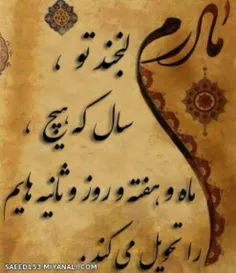 مادرم
لبخند تو ،
سال که هیچ ،
ماه و هفته و روز و ثانیه هایم
را تحویل می کند.
SAEED153.MIYANALI.COM